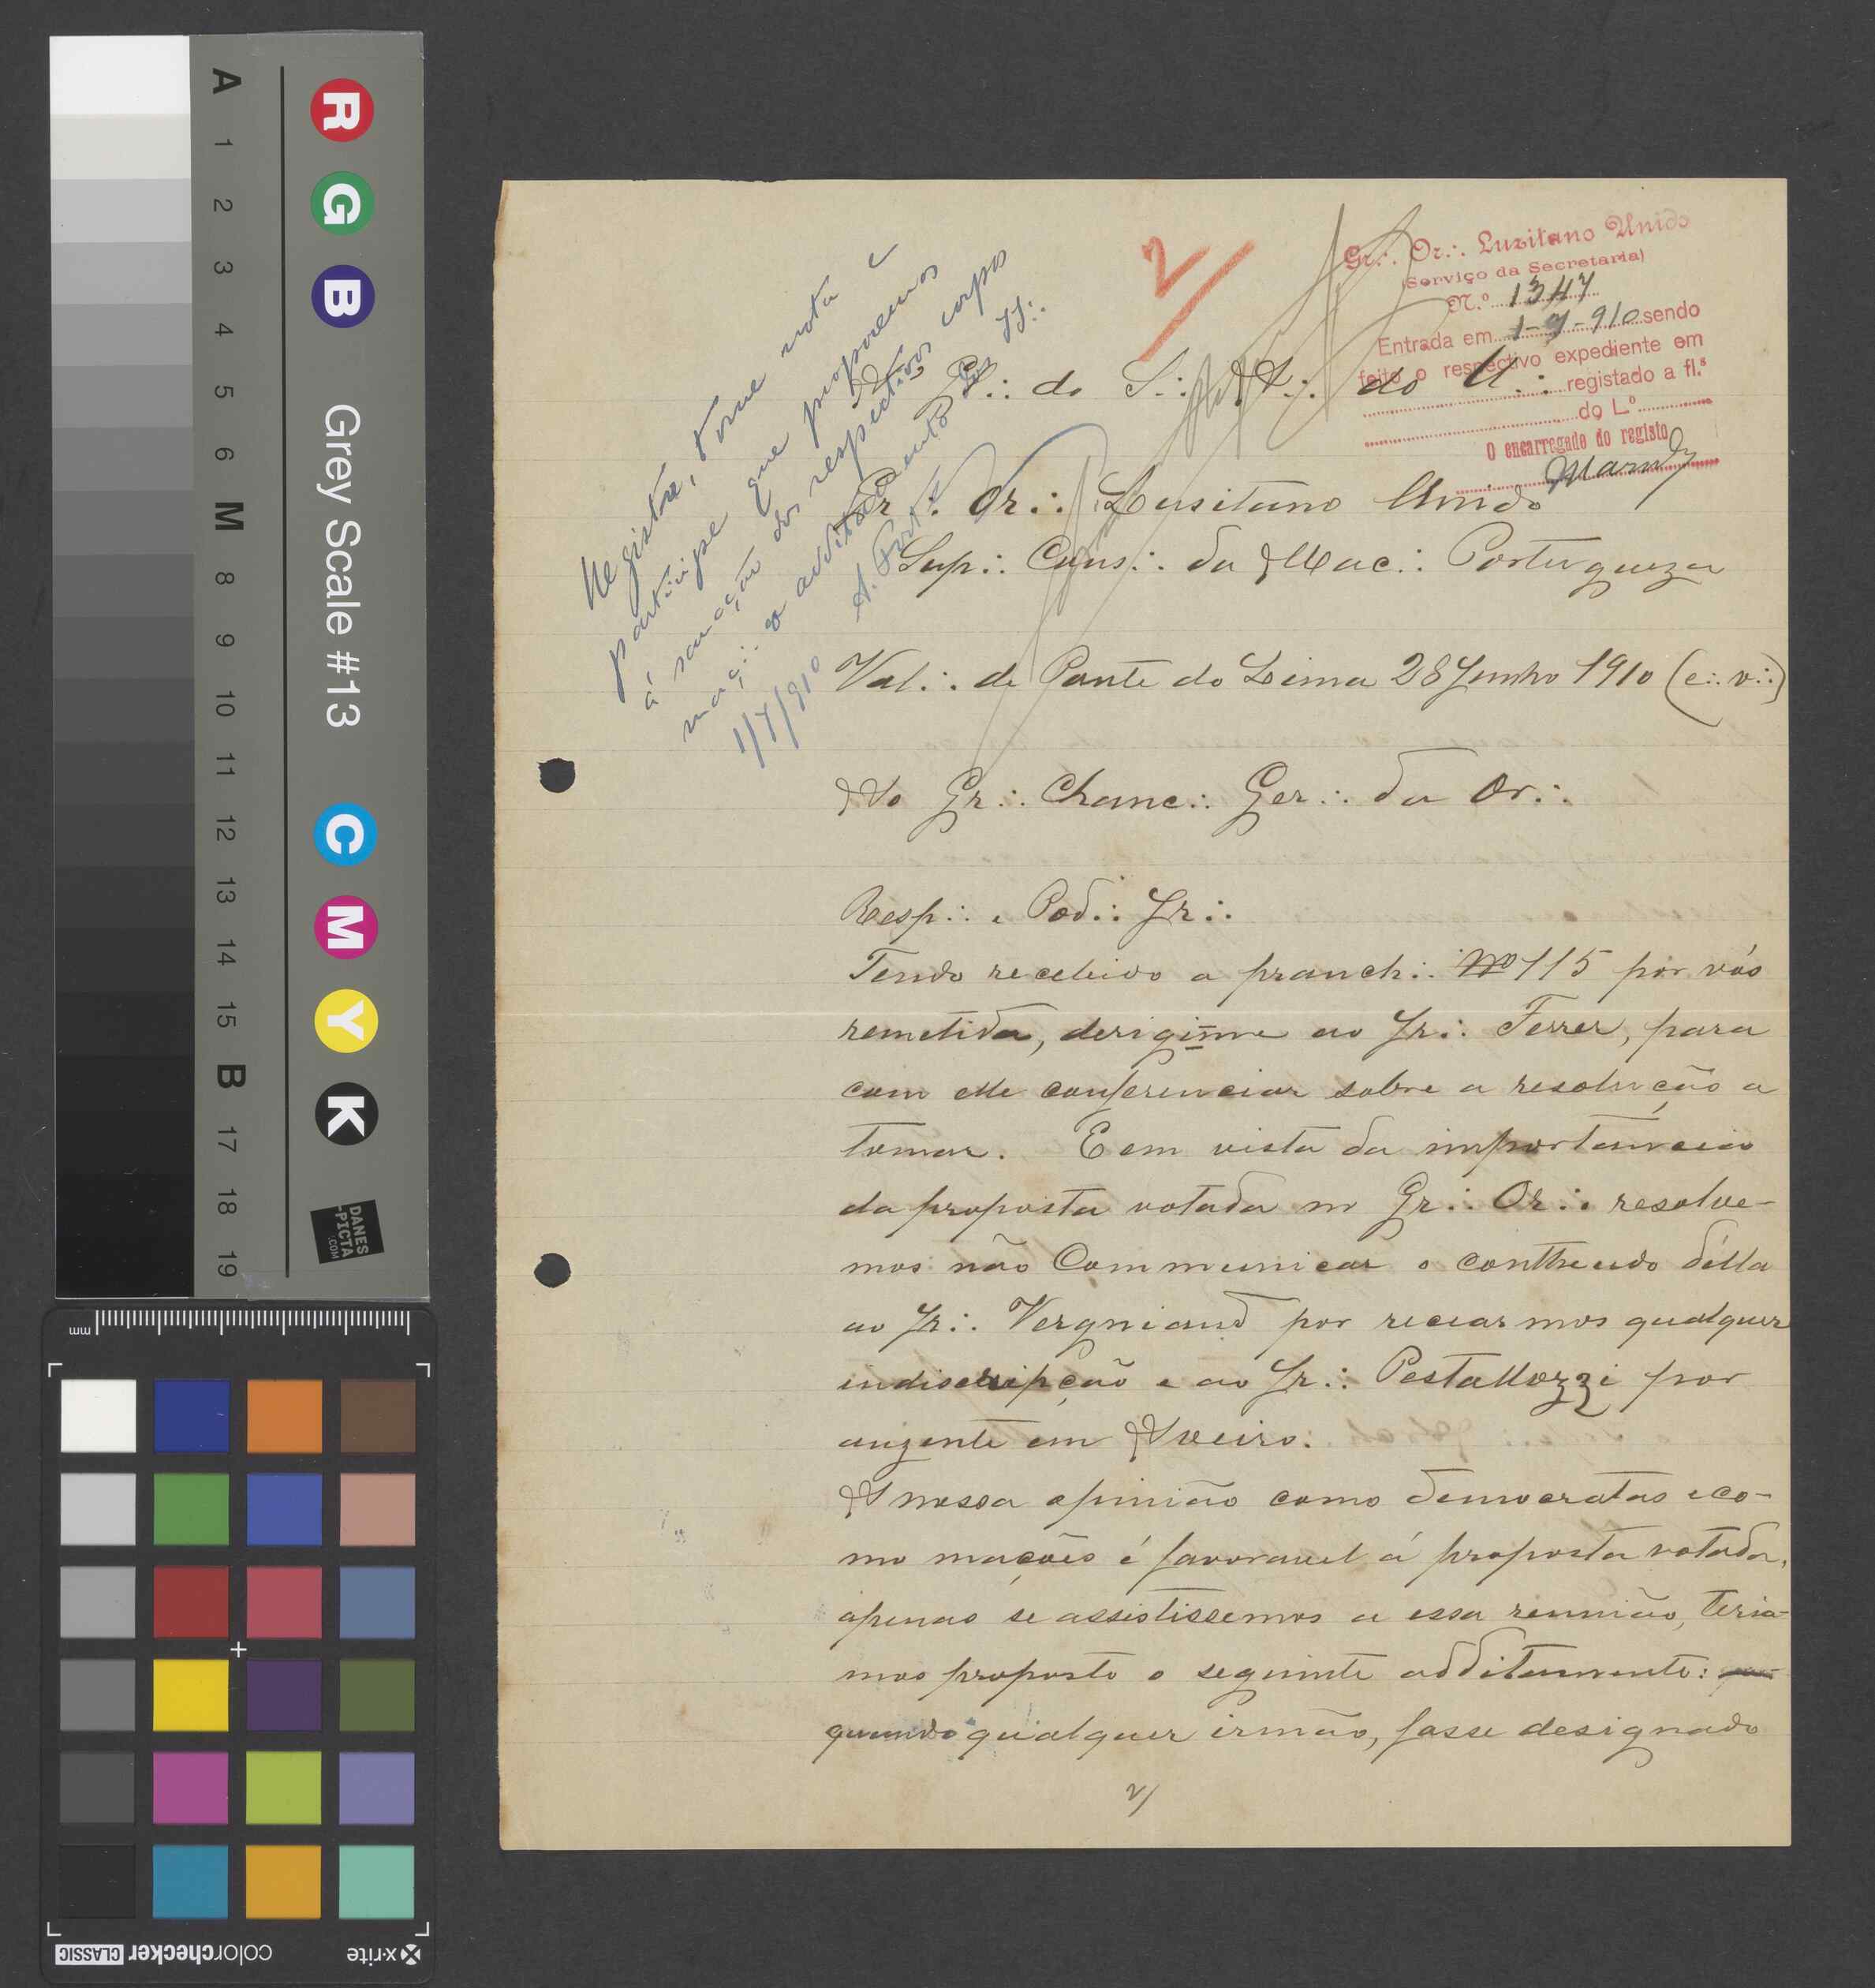 2/
Gr∴ Or∴ Luzitano Unido
(Serviço da Secretaria)
N.º 1347
Entrada em 1-7-910 sendo
feito o respectivo expediente em
registado a fl.ˢ
do L.º
O encarregado do registo
Registre, tome nota e
participe que proporemos
á sancção dos respectivos corpos
maç∴ o additamento
1/7/910
Á Gl∴ do S∴ A∴ do U∴
Gr∴ Or∴ Lusitano Unido
Sup∴ Cons∴ da Mac∴ Portugueza
Val∴ de Ponte do Lima 28 Junho 1910 (e∴ v∴)
Ao Gr∴ Chanc∴ Ger∴ da Or∴
Resp∴ e Pod∴ Ir∴
Tendo recebido a pranch∴ Nº 115 por vós
remetida, derigi=me ao Ir∴ Ferrer, para
com elle conferenciar sobre a resolução a
tomar. E em vista da importancia
da proposta votada no Gr∴ Or∴ resolve-
mos não Communicar o conttheudo d'ella
ao Ir∴ Vergniaud por receiarmos qualquer
indiscripção e ao Ir∴ Pestallozzi por
auzente em Aveiro.
A nossa opinião como democratas e co-
mo mações é favoravel á proposta votada,
apenas se assistissemos a essa reunião, teria-
mos proposto o seguinte additamento:
quando qualquer irmão, fosse designado
2/
A
1
2
3
4
5
6
M
8
9
10
11
12
13
14
15
B
17
18
19
R G B
Grey Scale #13
C M Y K
DANES
-PICTA
.COM
mm
x-rite
colorchecker CLASSIC